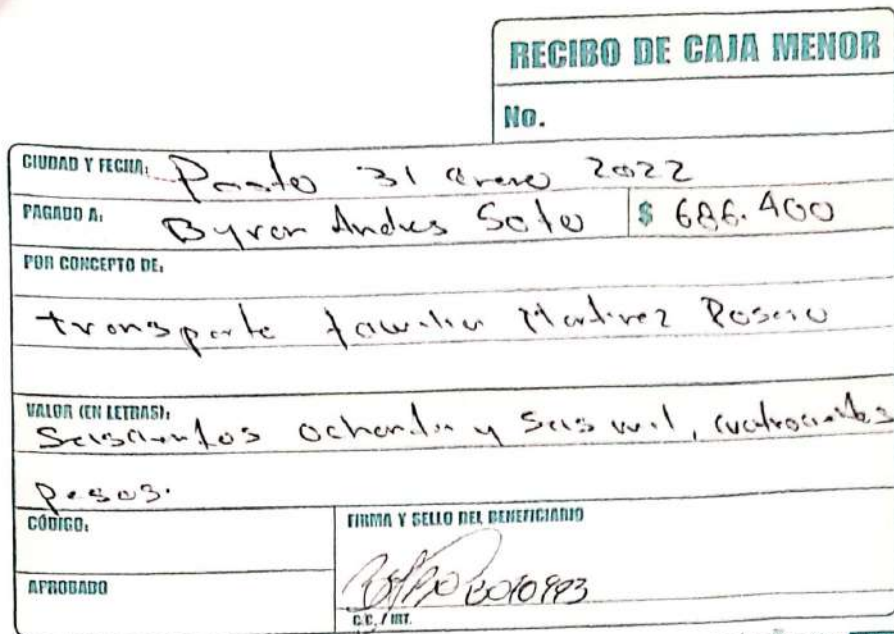 RECIBO DE CAJA MENOR
No.
CIUDAD Y FECHA: Pasto 31 enero 2022
PAGADO A: Byron Andres Soto $ 686.400
POR CONCEPTO DE:
transporte familia Martinez Rosero
VALOR (EN LETRAS):
Seiscientos ochenta y seis mil, cuatrocientos
pesos.
CÓDIGO: FIRMA Y SELLO DEL BENEFICIARIO
APROBADO
C.C. / NIT.